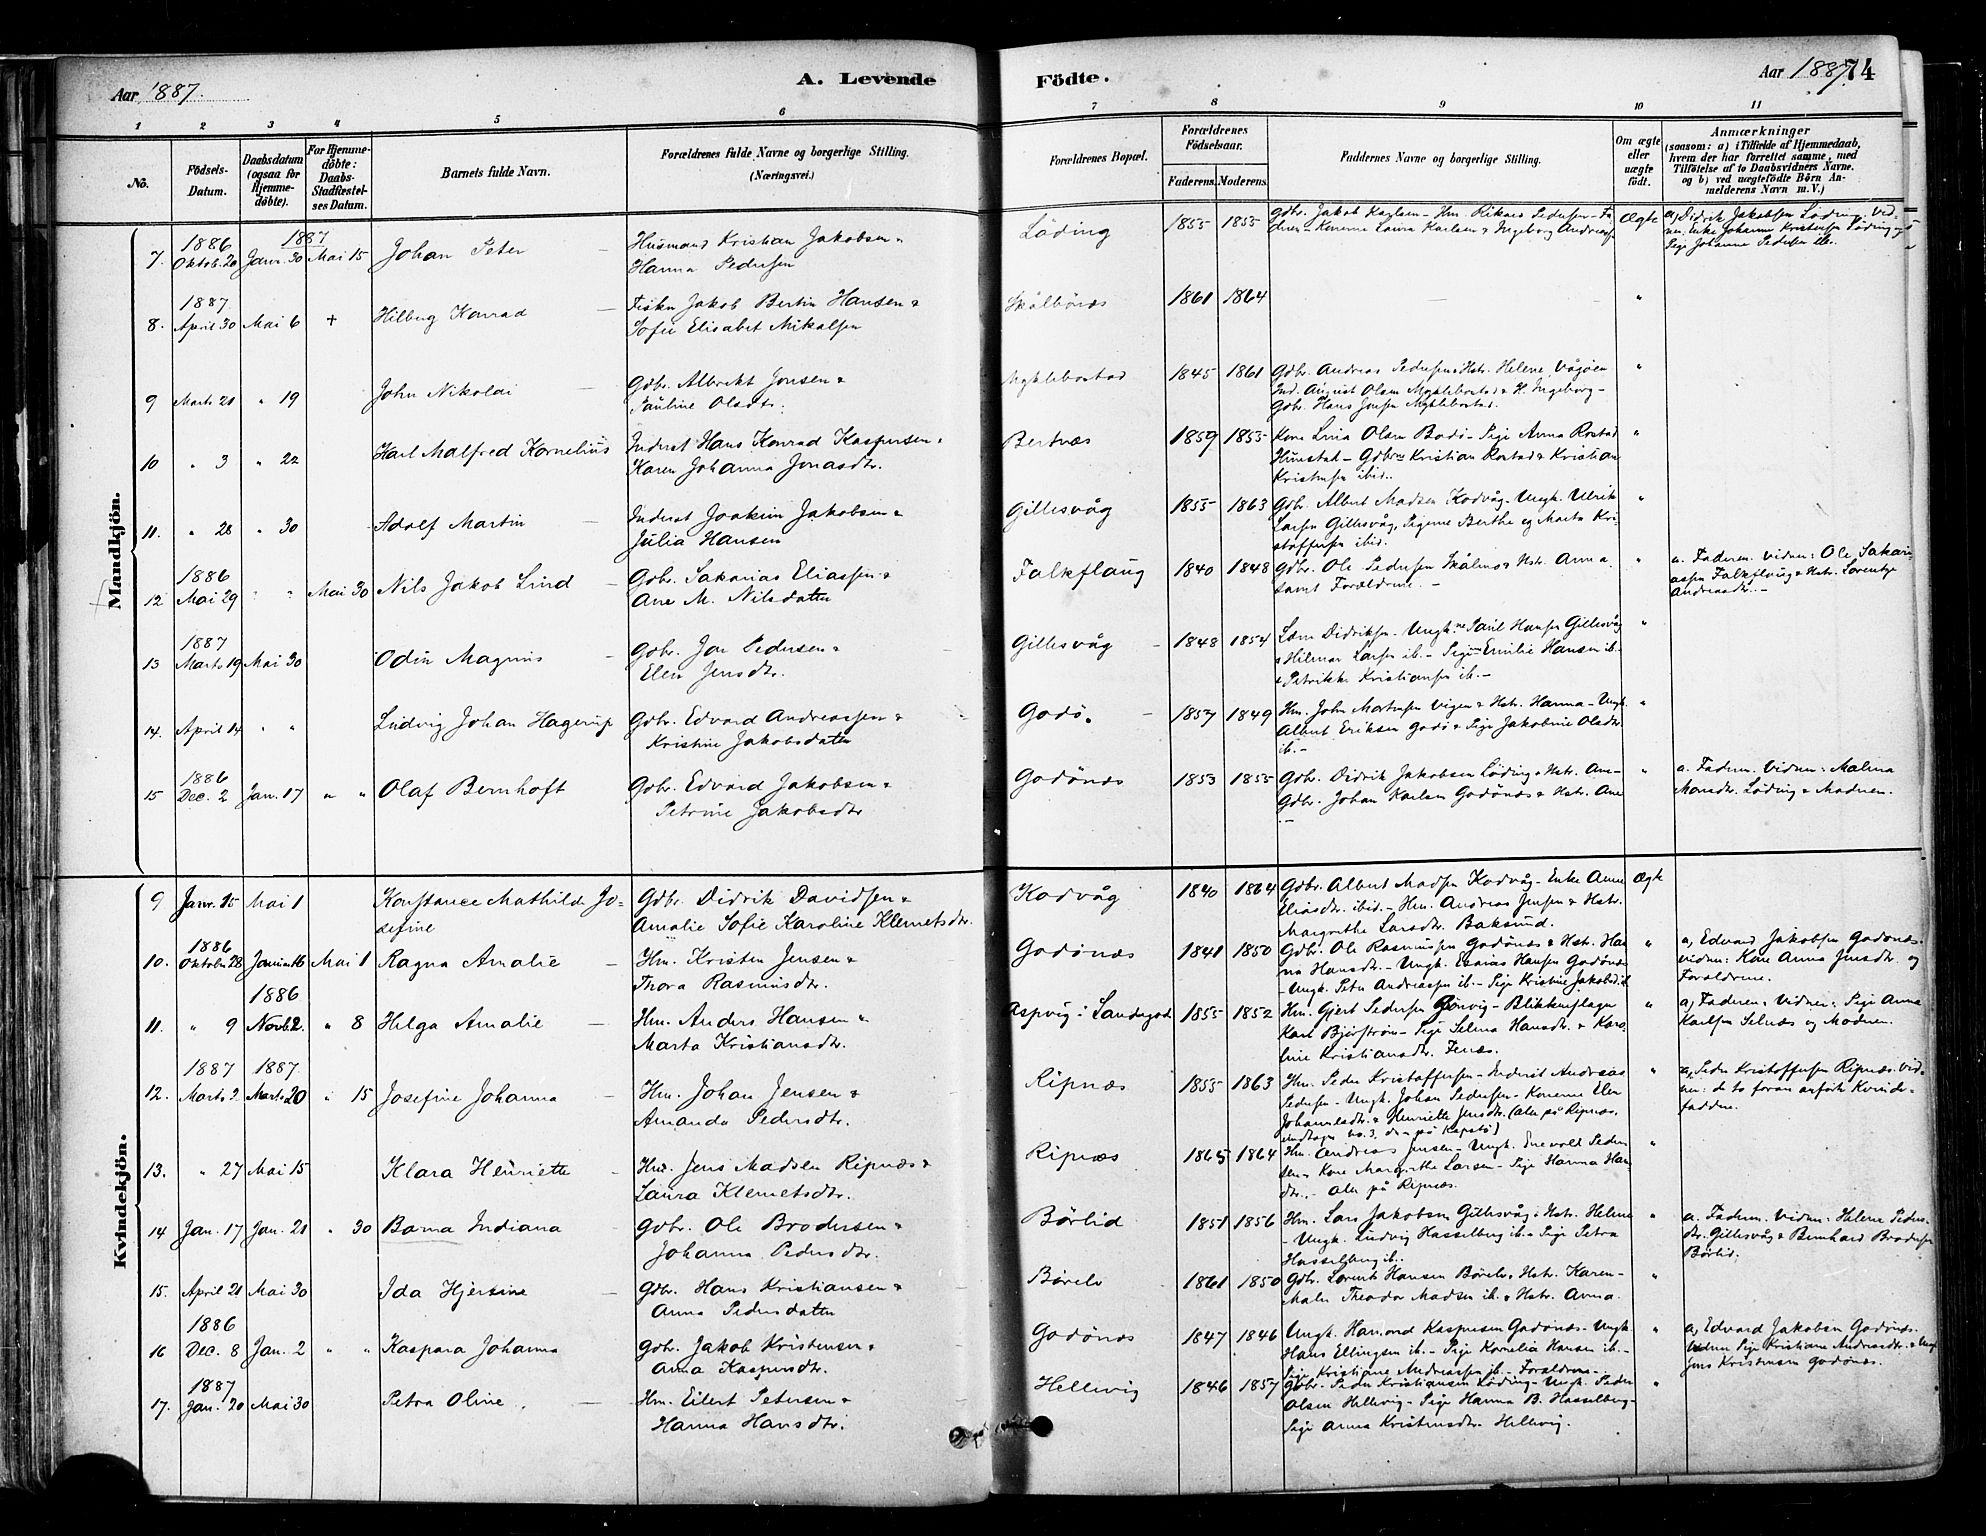 Aar 1887.
A. Levende
Födte.
Aar 1887.
74
1 2 3 4 5 6 7 8 9 10 11
No.
Födsels-Datum.
Daabsdatum (ogsaa for Hjemme-döbte).
For Hjemme-döbte: Daabs-Stadfæstel-ses Datum.
Barnets fulde Navn.
Forældrenes fulde Navne og borgerlige Stilling.
(Næringsvei.)
Forældrenes Bopæl.
Forældrenes Födselsaar.
Faderens. Moderens.
Faddernes Navne og borgerlige Stilling.
Om ægte eller uægte födt.
Anmærkninger
(saasom: a) i Tilfælde af Hjemmedaab, hvem der har forrettet samme, med Tilföielse af to Daabsvidners Navne, og b) ved uægtefödte Börn An-melderens Navn m. V.)
Mandkjön.
7. 1886 Oktob. 20 Janr. 30 1887 Mai 15 Johan Peter
Husmand Kristian Jakobsen &
Hanna Pedersen
Löding 1855 1855 Gdbr. Jakob Karlsen - Hm. Rikard Pedersen -
Konerne Laura Karlsen & Ingeborg Andreass.
Ægte a, Didrik Jakobsen Löding. Vid-
ner. Enke Johanne Kristensen Löding og
Pige Johanne Pedersen
8. 1887 April 30 Mai 6 + Hilberg Konrad
Fisker Jakob Bertin Hansen &
Sofie Elisabet Mikalsen
Skålbönes 1861 1864 - - "
9 Marts 21 " 19 John Nikolai
Gdbr. Albrekt Jonsen &
Pauline Olsdtr.
Myklebostad 1845 1861 Gdbr. Andreas Pedersen & Hstr. Helene Vågöen
Ind. August Olsen Myklebostad & H. Ingeborg -
Gdbr. Hans Jensen Myklebostad. "
10 " 3 " 22 Karl Malfred Kornelius
Inderst Hans Konrad Kaspersen &
Karen Johanna Jonasdtr.
Bertnæs 1859 1855 Kone Lina Olsen Bodö - Pige Anna Rostad
Hunstad - Gdbrne Kristian Rostad & Kristian
Kristensen ibid. "
11. " 28 " 30 Adolf Martin
Inderst Joakim Jakobsen &
Julia Hansen
Gillesvåg 1855 1863 Gdbr. Albert Madsen Kodvåg - Ungk. Ulrik
Larsen Gillesvåg, Pigerne Berthe og Marta Kri-
stoffersen ibid. "
12 1886 Mai 29 " " Mai 30 Nils Jakob Lind
Gdbr. Sakarias Eliassen &
Ane M. Nilsdatter
Falkflaug 1840 1848 Gdbr. Ole Pedersen Skålnes & Hstr. Anna
samt Forældrene. - "
a. Faderen. Vidner: Ole Sakari-
assen Falkflaug & Hstr. Lorentze
Andreasdtr. -
13 1887 Marts 19 Mai 30 Odin Magnus
Gdbr. Jon Pedersen &
Elen Jensdtr.
Gillesvåg - 1848 1854 Lars Didriksen - Ungk. Paul Hansen Gillesvåg
& Hilmar Larsen ib. - Pige Emilie Hansen ib.
& Petrikke Kristiansen ib. - "
14. April 14 " " Ludvig Johan Hagerup
Gdbr. Edvard Andreassen &
Kristine Jakobsdatter
Godö. - 1857 1849 Hm. John Martinsen Vigen & Hstr. Hanna - Ungk.
Albert Eriksen Godö & Pige Jakobine Olsdtr.
ib. - "
15 1886 Dec. 2 Jan. 17 " " Olaf Bernhoft
Gdbr. Edvard Jakobsen &
Petrine Jakobsdtr.
Godönæs 1853 1855 Gdbr. Didrik Jakobsen Löding & Hstr. Ane -
Gdbr. Johan Karlsen Godönæs & Hstr. Ane "
a. Faderen. Vidner: Malina
Monsdtr. Löding & Moderen.
Kvindekjön.
9 Janr. 15 Mai 1 Konstance Mathilde Jo-
sefine
Gdbr. Didrik Davidsen &
Amalie Sofie Karoline Klemetsdtr.
Kodvåg 1840 1864 Gdbr. Albert Madsen Kodvåg - Enke Anne
Eliasdtr. ibid. - Hm. Andreas Jensen & Hstr.
Margrethe Larsdtr. Baksund. Ægte
10. 1886 Oktober 28 Januar 16 Mai 1 Ragna Amalie
Hm. Kristen Jensen &
Thora Rasmusdtr.
Godönæs 1841 1850 Gdbr. Ole Rasmussen Godönæs & Hstr. Han-
na Hansdtr. - Ungk. Esaias Hansen Godönæs
- Ungk. Peter Andreassen ib. - Pige Kristine Jakobsd. ib. "
a, Edvard Jakobsen Godönæs.
Vidner: Kone Anna Jensdtr. og
Forældrene.
11. " 9 1886 Novb. 2. " 8 Helga Amalie
Hm. Anders Hansen &
Marta Kristiansdtr.
Aspvig i Landegod 1855 1852 Hm. Gjert Pedersen - Blikkenslager
Karl Bjerström - Pige Selma Hansdtr. & Karo-
line Kristiansdtr. Fenes. "
a, Faderen. Vidner: Pige Anne
Karlsen Selnæs og Moderen.
12. 1887 Marts 2 1887 Marts 20 " 15 Josefine Johanna
Hm. Johan Jensen &
Amanda Pedersdtr.
Ripnæs 1855 1863 Hm. Peder Kristoffersen - Inderst Andreas
Pedersen - Ungk. Johan Pedersen - Konerne Elen
Johannesdtr. & Henriette Jensdtr. (Alle på Ripnæs,
undtagen no. 3, der er på Kapstö) "
a, Peder Kristoffersen Ripnæs. Vid-
ner: de to foran anförte Kvinde-
faddere.
13. " 27 Mai 15 Klara Henriette
Hm. Jens Madsen Ripnæs &
Laura Klemetsdtr.
Ripnæs 1865 1864 Hm. Andreas Jensen - Ungk. Enevold Peder-
sen - Kone Margrethe Larsen - Pige Hanna Han-
dtr. - Alle på Ripnæs. "
14 Jan. 17 Jan. 21 " 30 Barna Indiana
Gdbr. Ole Brodersen &
Johanna Pedersdtr.
Börlid 1851 1856 Hm. Lars Jakobsen Gillesvåg & Hstr. Helene
- Ungk. Ludvig Hasselberg ib. & Pige Petra
Hasselberg ib. "
a. Faderen. Vidner: Helene Peders-
dtr. Gillesvåg & Bernhard Brodersen
Börlid.
15. April 21 Mai 30 Ida Hjersine
Gdbr. Hans Kristiansen &
Anna Pedersdatter
Börelv 1861 1850 Gdbr. Lorents Hansen Börelv & Hstr. Karen -
Maler Theodor Madsen ib. & Hstr. Anna. "
16 1886 Dec. 8 Jan. 2 " " Kaspara Johanna
Gdbr. Jakob Kristensen &
Anna Kaspersdtr.
Godönæs 1847 1846 Ungk. Harord Kaspersen Godönæs - Ungk.
Hans Ellingsen ib. - Pige Kornelia Hansen ib. -
Pige Kristiane Andreassen ib. - Forældrene. - "
a, Edvard Jakobsen Godönes.
Vidner Pige Kristiane Andreasdtr. & Ungk.
Jens Kristensen Godönæs.
17. 1887 Jan. 20 Mai 30 Petra Oline
Hm. Eilert Petersen &
Hanna Hansdtr.
Hellivig 1846 1857 Gdbr. Peder Kristiansen Löding - Ungk. Peder
Olsen Hellivig - Pige Hanna B. Hasselberg -
Pige Anna Kristensdtr. Hellivig. "